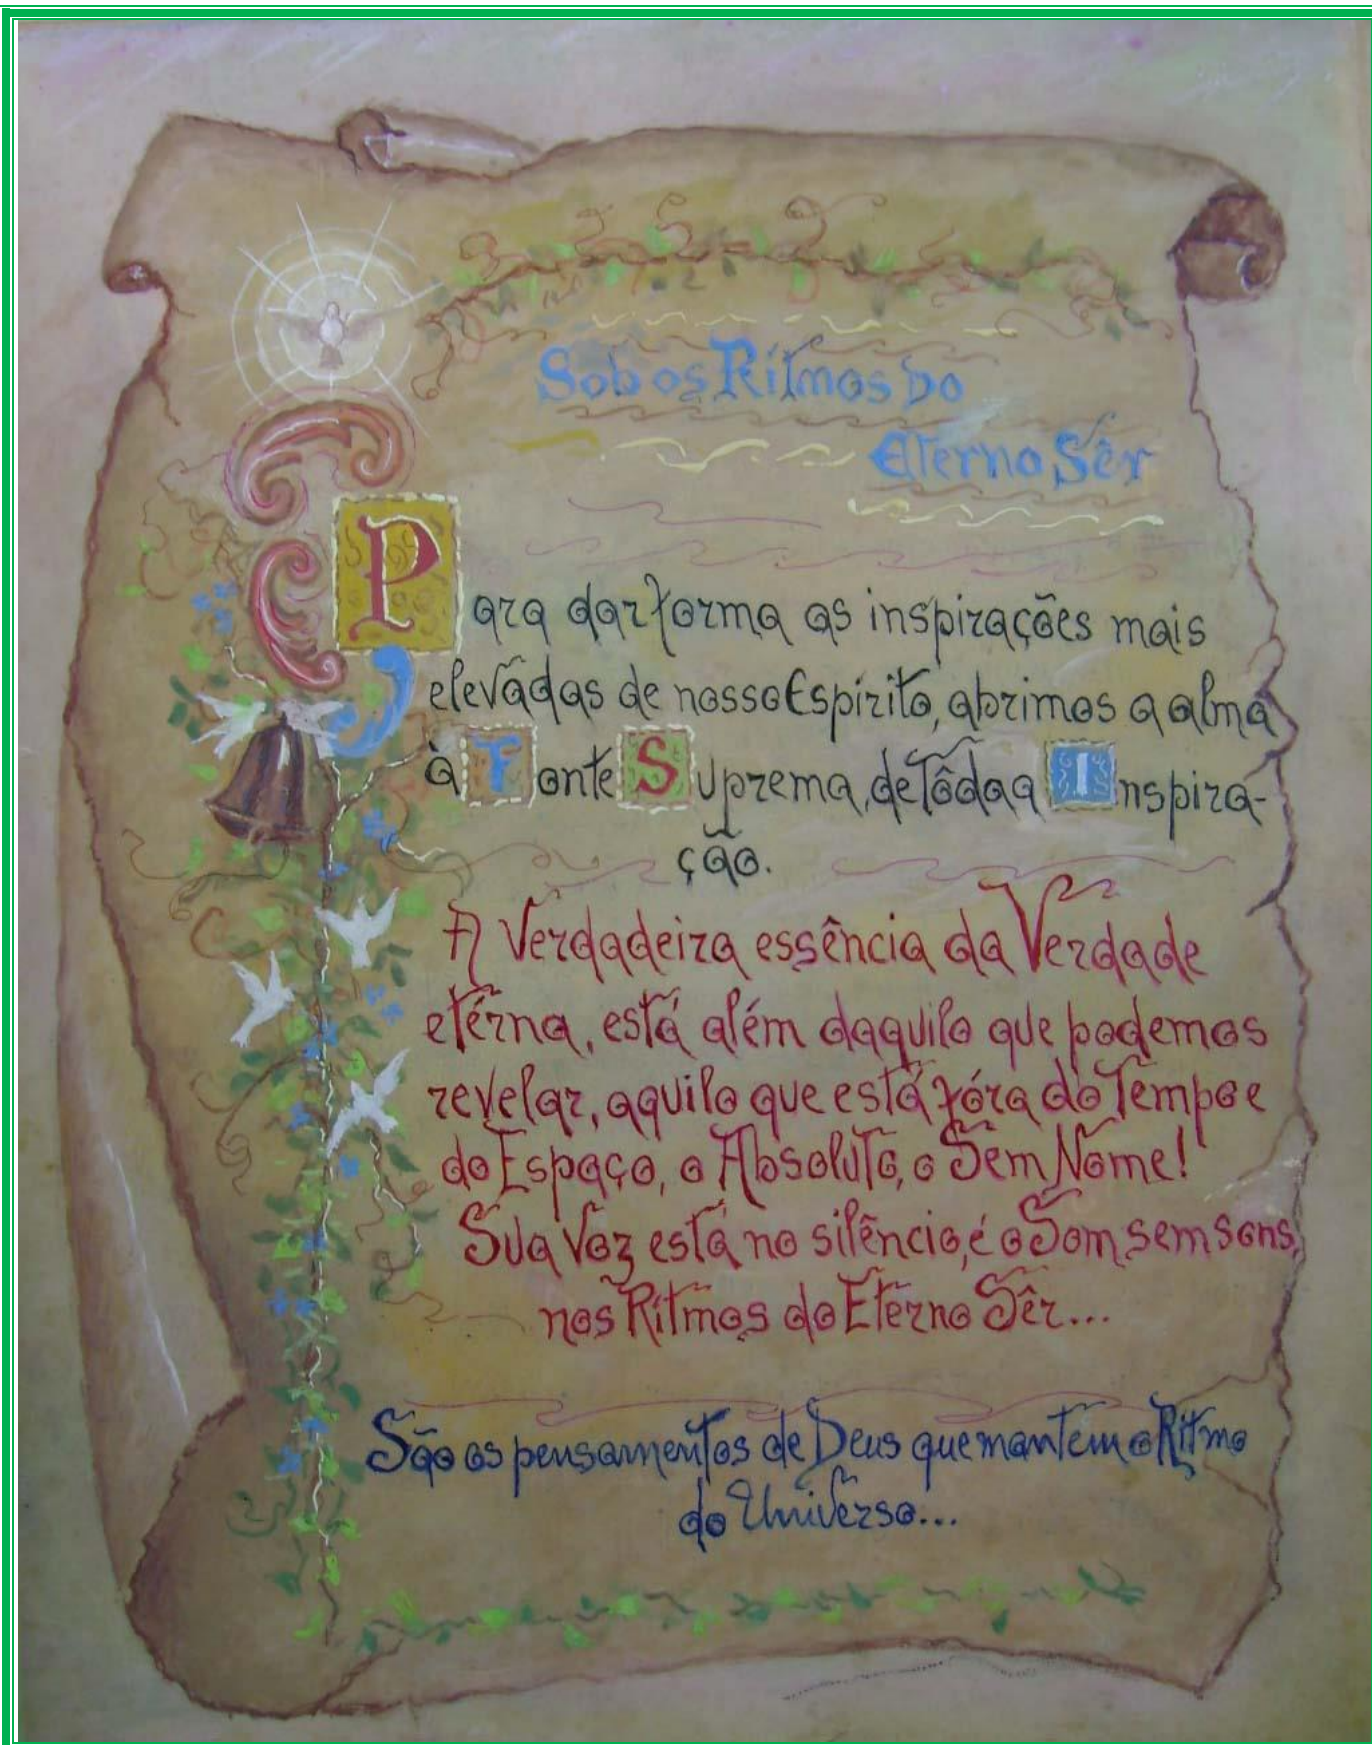 Sob os Ritmos Do
Eterno Sêr
Para dar forma as inspirações mais
elevadas de nosso Espírito, abrimos a alma
à Fonte Suprema, de Tôda a Inspira-
ção.
A Verdadeira essência da Verdade
etérna, está além daquilo que podemos
revelar, aquilo que está fóra do Tempo e
do Espaço, o Absoluto, o Sem Nome!
Sua Voz está no silêncio, é o Som sem sons,
nos Ritmos do Eterno Sêr...
São os pensamentos de Deus que mantem o Ritmo
do Universo...